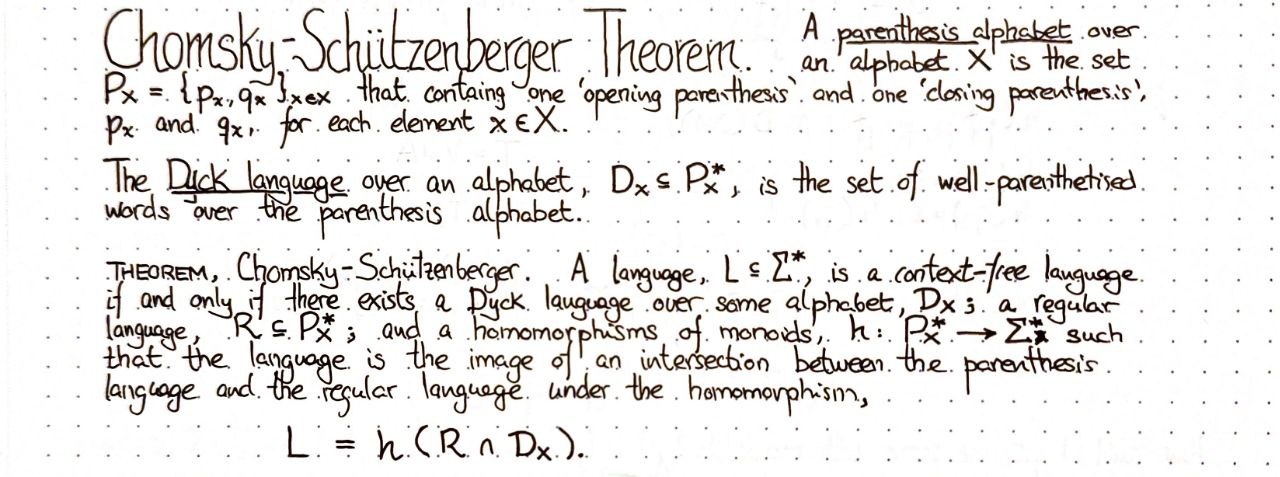 Chomsky-Schützenberger Theorem. A parenthesis alphabet over
an alphabet X is the set
Pₓ = {pₓ, qₓ}ₓ∈X that containg one 'opening parenthesis' and one 'closing parenthesis',
pₓ and qₓ, for each element x ∈ X.
The Dyck language over an alphabet, Dₓ ⊆ Pₓ*, is the set of well-parenthetised
words over the parenthesis alphabet.
THEOREM, Chomsky-Schützenberger. A language, L ⊆ Σ*, is a context-free language
if and only if there exists a Dyck language over some alphabet, Dₓ; a regular
language, R ⊆ Pₓ*; and a homomorphisms of monoids, h: Pₓ* → Σ* such
that the language is the image of an intersection between the parenthesis
language and the regular language under the homomorphism,
L = h(R ∩ Dₓ).